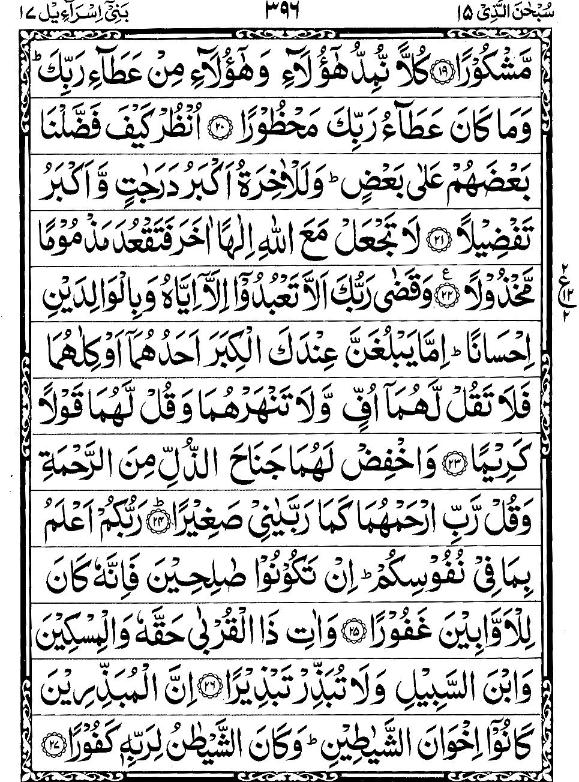 سُبْحٰنَ الَّذِیْ ١٥ ٣٩٦ بَنِیْٓ اِسْرَآءِیْل ١٧
مَّشْكُوْرًا ﴿١٩﴾ كُلًّا نُّمِدُّ هٰٓؤُلَآءِ وَ هٰٓؤُلَآءِ مِنْ عَطَآءِ رَبِّكَ ؕ
وَ مَا كَانَ عَطَآءُ رَبِّكَ مَحْظُوْرًا ﴿٢٠﴾ اُنْظُرْ كَیْفَ فَضَّلْنَا
بَعْضَهُمْ عَلٰی بَعْضٍ ؕ وَ لَلْاٰخِرَةُ اَكْبَرُ دَرَجٰتٍ وَّ اَكْبَرُ
تَفْضِیْلًا ﴿٢١﴾ لَا تَجْعَلْ مَعَ اللّٰهِ اِلٰهًا اٰخَرَ فَتَقْعُدَ مَذْمُوْمًا
مَّخْذُوْلًا ﴿٢٢﴾ ع وَ قَضٰی رَبُّكَ اَلَّا تَعْبُدُوْۤا اِلَّاۤ اِیَّاهُ وَ بِالْوَالِدَیْنِ
٢ ع ١٢ ٢
اِحْسَانًا ؕ اِمَّا یَبْلُغَنَّ عِنْدَكَ الْكِبَرَ اَحَدُهُمَاۤ اَوْ كِلٰهُمَا
فَلَا تَقُلْ لَّهُمَاۤ اُفٍّ وَّ لَا تَنْهَرْهُمَا وَ قُلْ لَّهُمَا قَوْلًا
كَرِیْمًا ﴿٢٣﴾ وَ اخْفِضْ لَهُمَا جَنَاحَ الذُّلِّ مِنَ الرَّحْمَةِ
وَ قُلْ رَّبِّ ارْحَمْهُمَا كَمَا رَبَّیٰنِیْ صَغِیْرًا ﴿٢٤﴾ ؕ رَبُّكُمْ اَعْلَمُ
بِمَا فِیْ نُفُوْسِكُمْ ؕ اِنْ تَكُوْنُوْا صٰلِحِیْنَ فَاِنَّهٗ كَانَ
لِلْاَوَّابِیْنَ غَفُوْرًا ﴿٢٥﴾ وَ اٰتِ ذَا الْقُرْبٰی حَقَّهٗ وَ الْمِسْكِیْنَ
وَ ابْنَ السَّبِیْلِ وَ لَا تُبَذِّرْ تَبْذِیْرًا ﴿٢٦﴾ اِنَّ الْمُبَذِّرِیْنَ
كَانُوْۤا اِخْوَانَ الشَّیٰطِیْنِ ؕ وَ كَانَ الشَّیْطٰنُ لِرَبِّهٖ كَفُوْرًا ﴿٢٧﴾